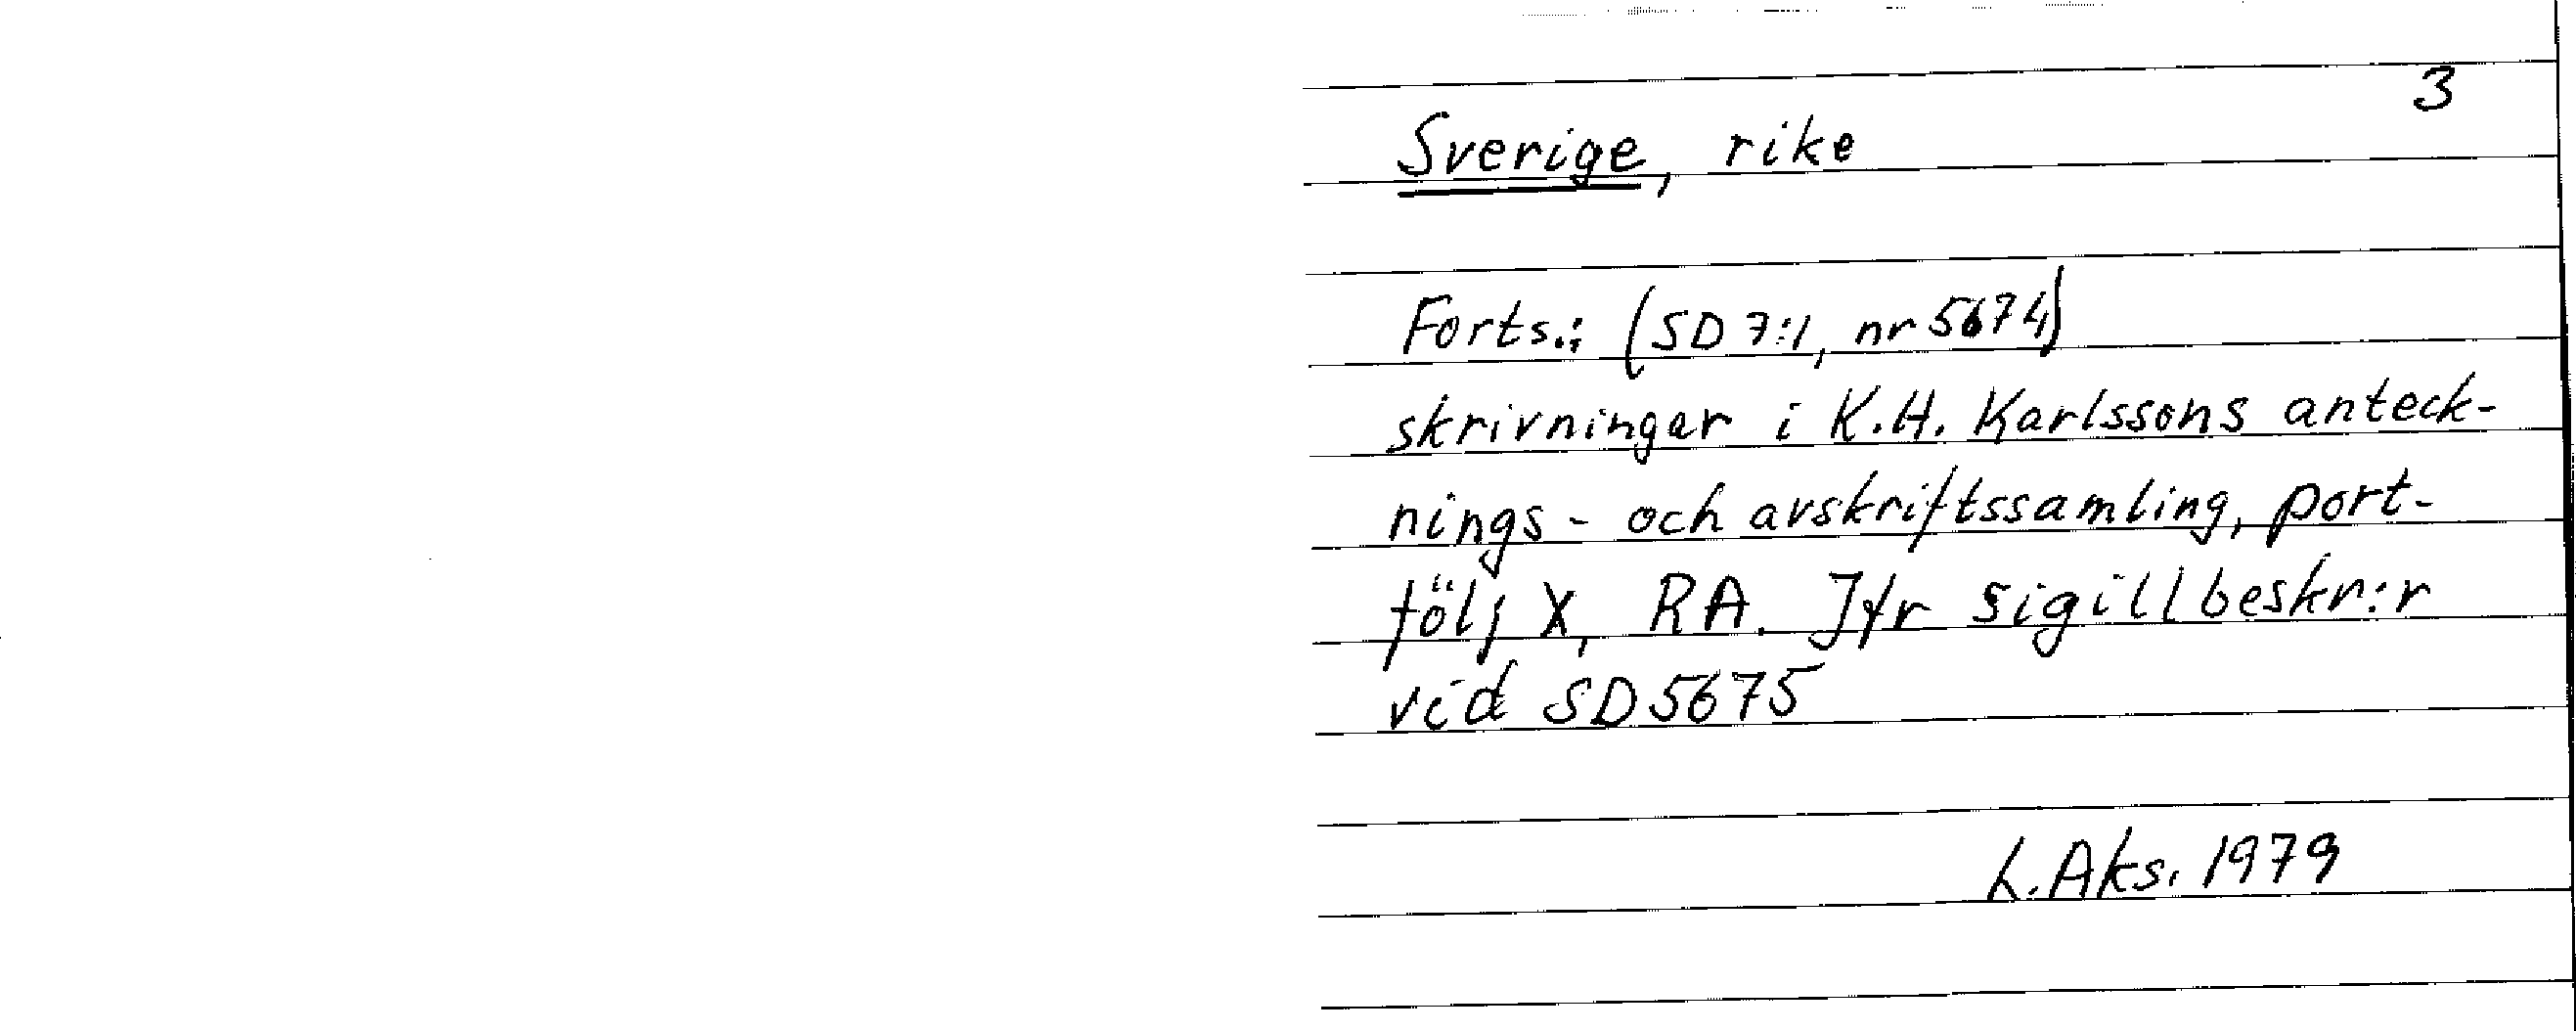 3
Sverige, rike
Forts.: (SD 7:1, nr 5674)
skrivningar i K.H. Karlssons anteck-
nings- och avskriftssamling, port-
följ X, RA. Jfr sigillbeskr:r
vid SD 5675
L. Aks. 1979